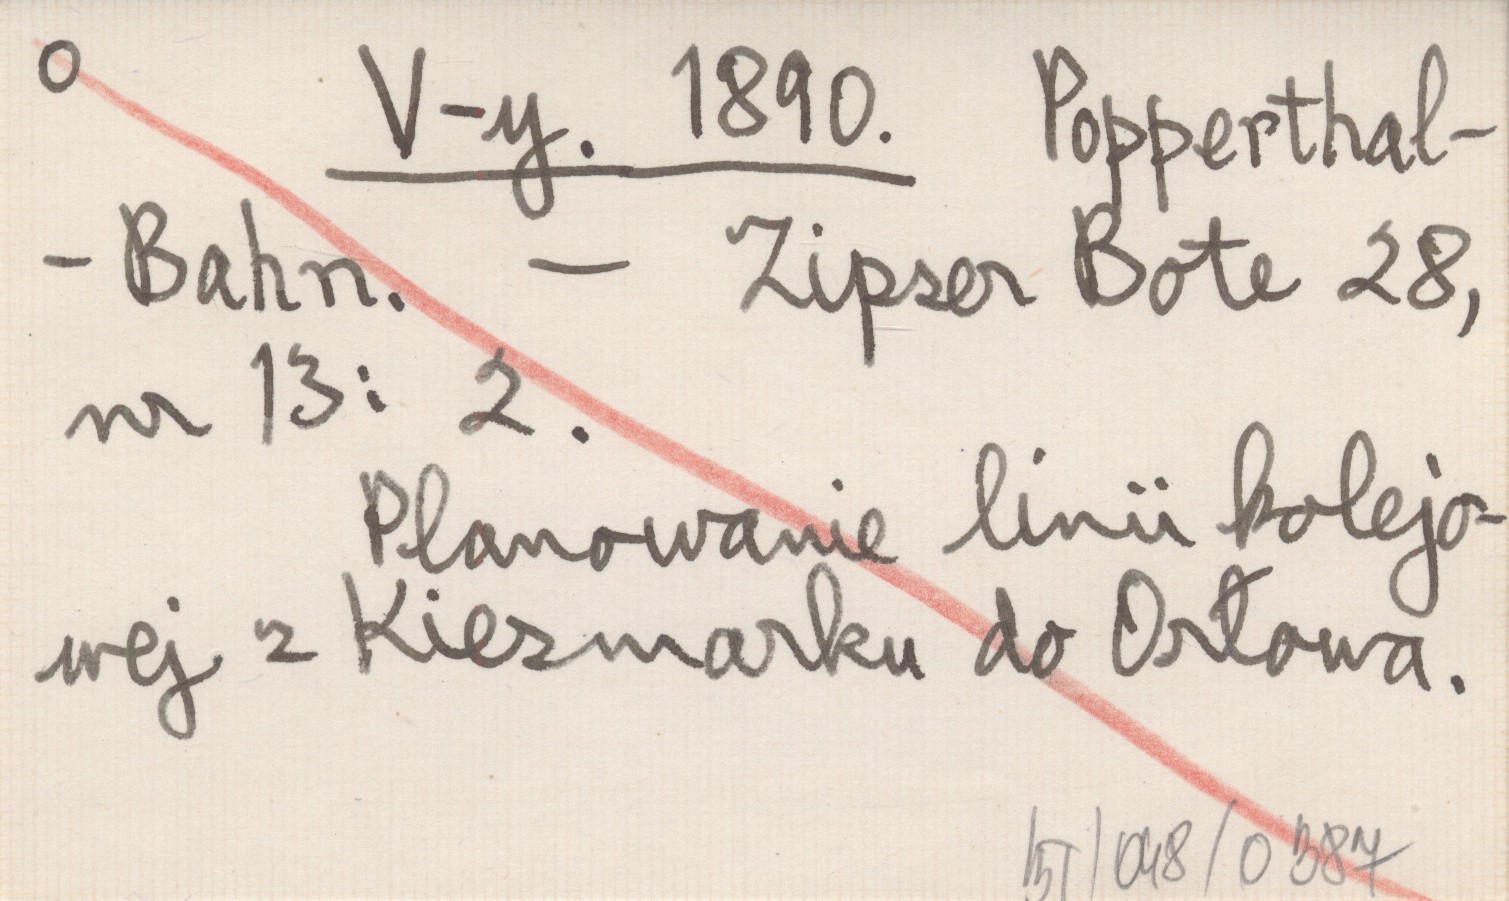 o V-y. 1890. Popperthal-
- Bahn. — Zipser Bote 28,
nr 13: 2.
Planowanie linii kolejo-
wej z Kiezmarku do Orłowa.